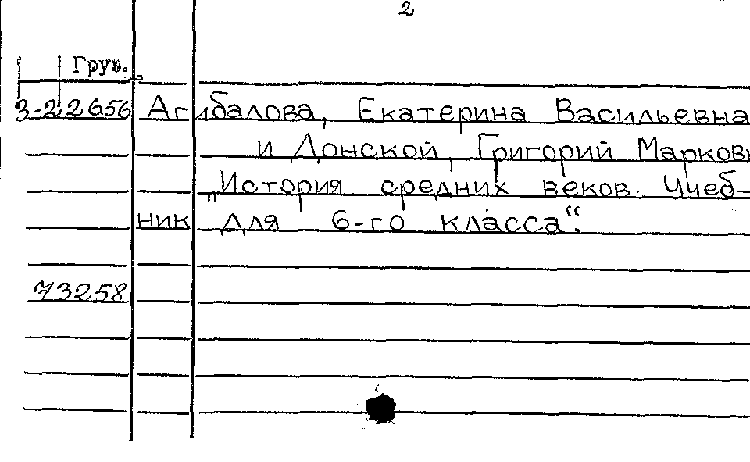 2
Груз.
3-22656 Агибалова, Екатерина Васильевна
и Донской, Григорий Марков
„История средних веков. Учеб-
ник для 6-го класса“.
73258